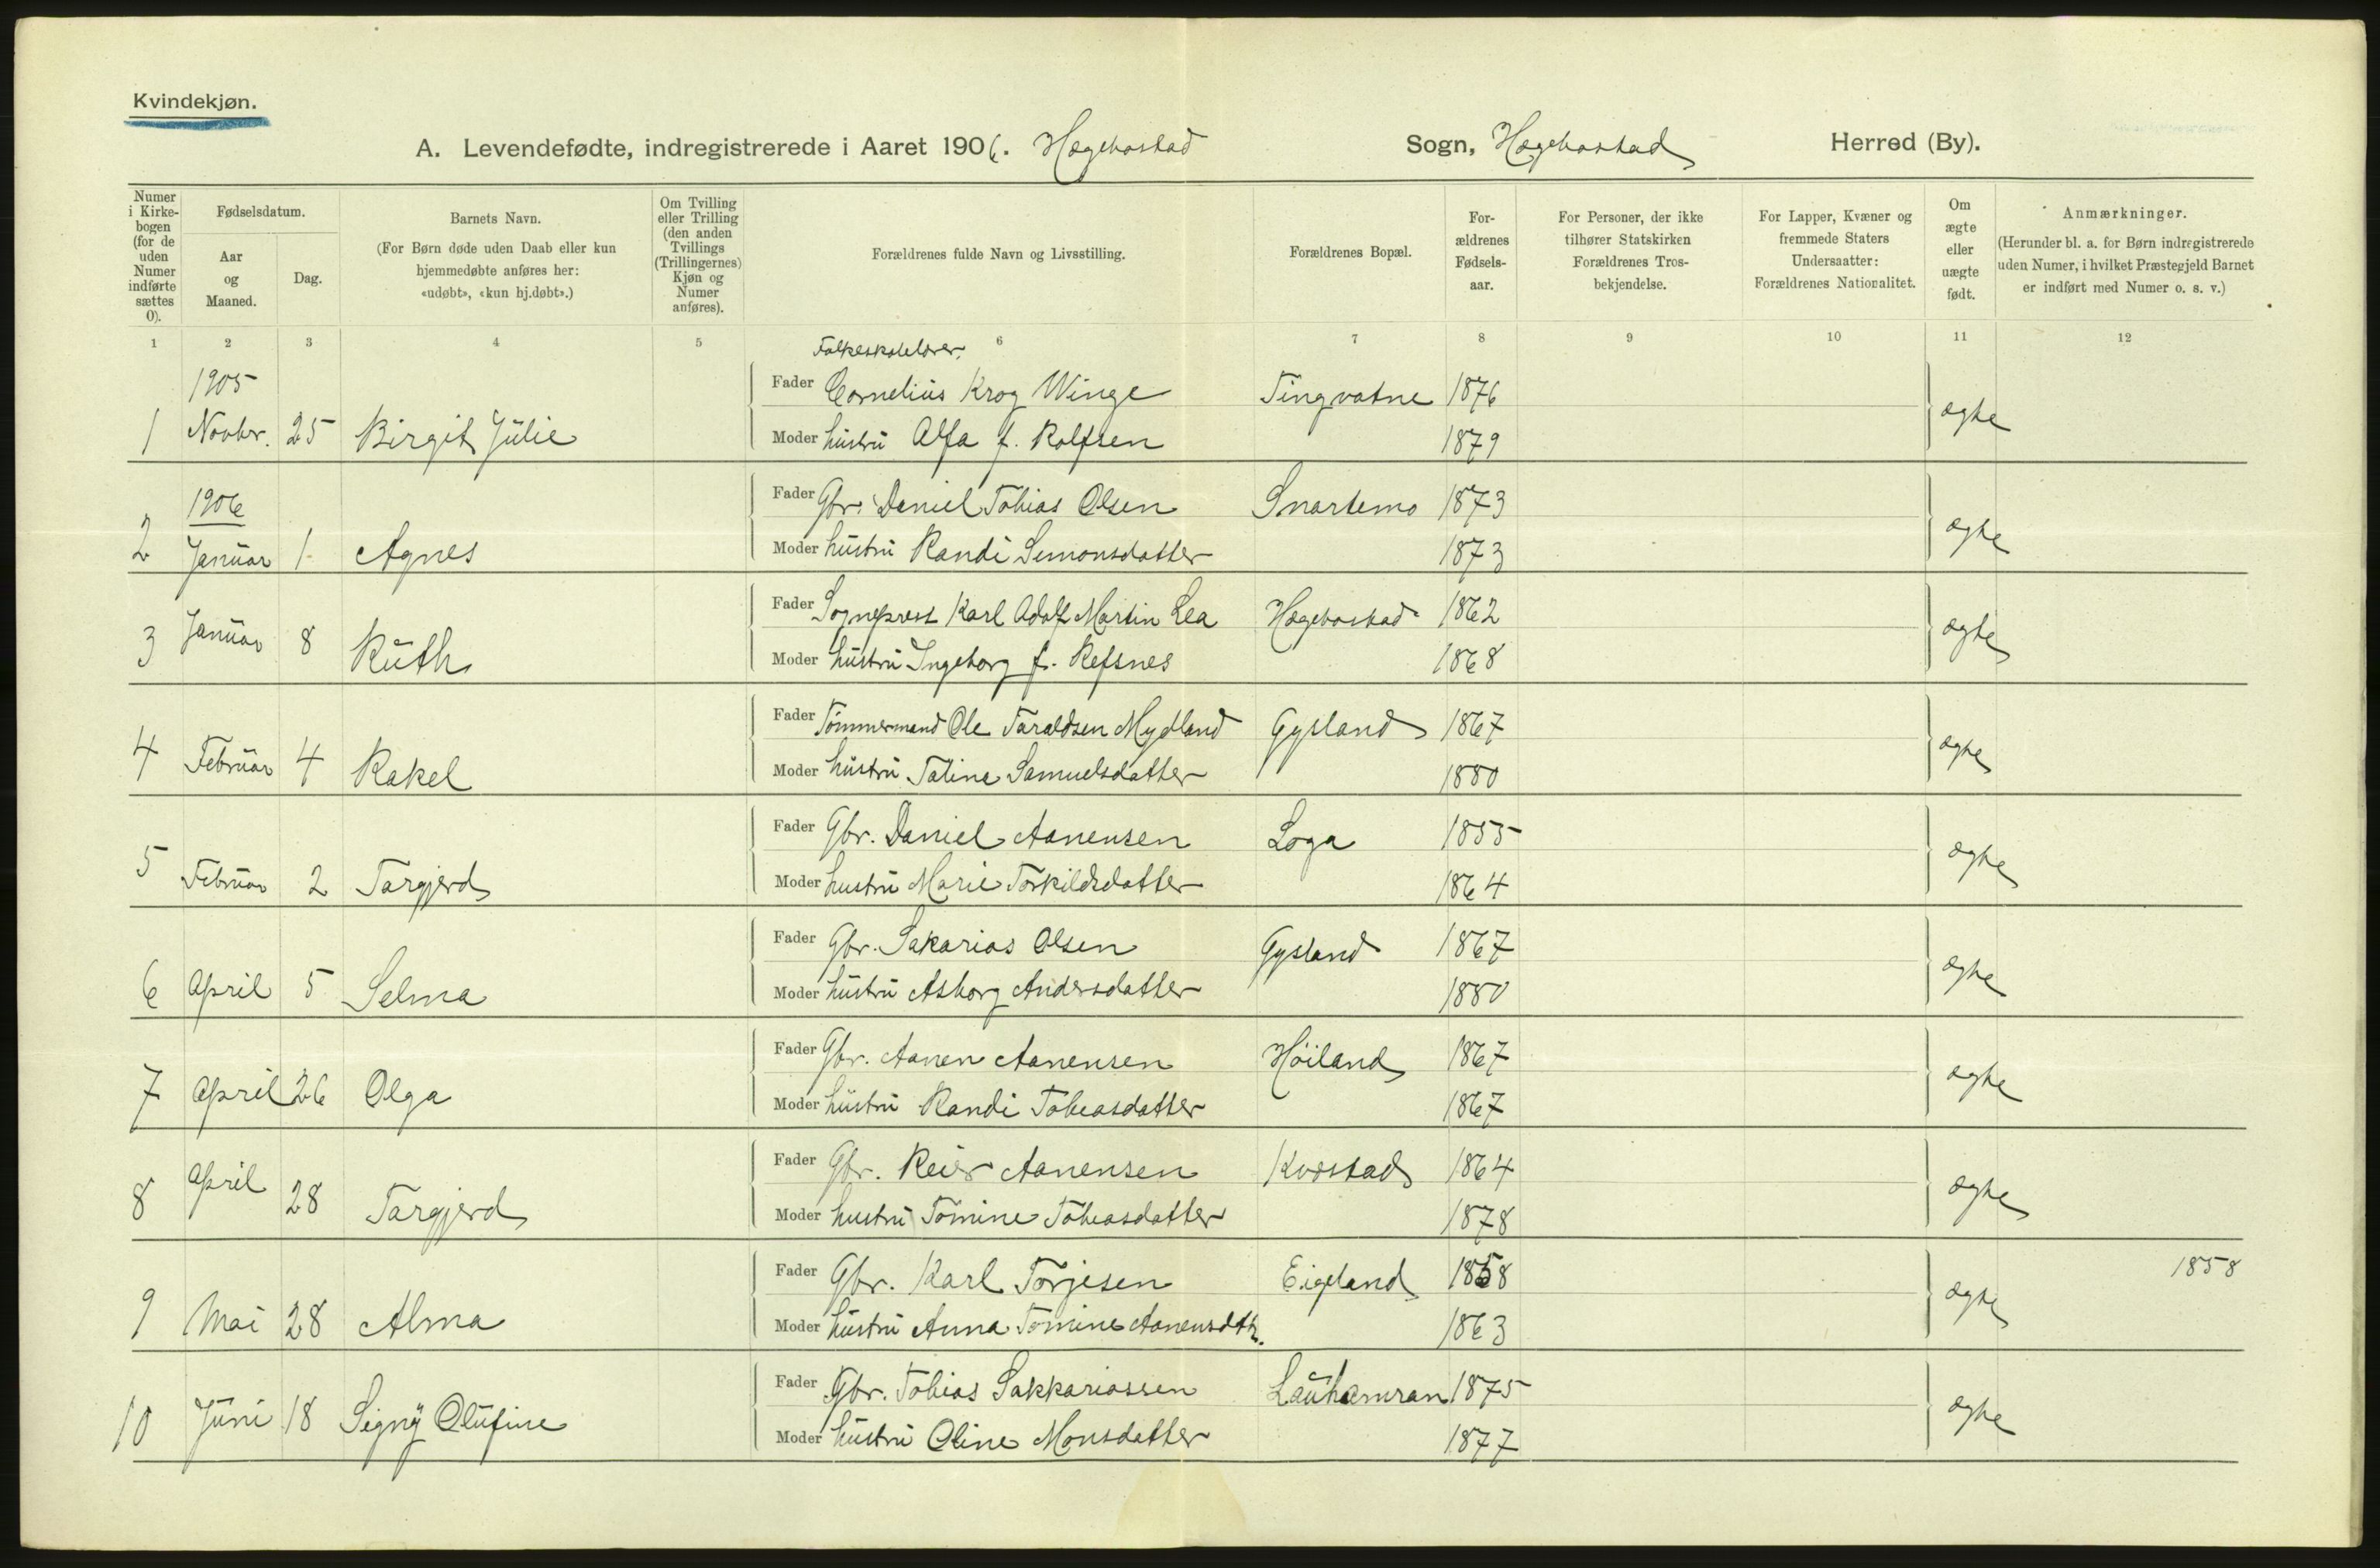 Kvindekjøn.
A. Levendefødte, indregistrerede i Aaret 1906. Hægebostad Sogn, Hægebostad Herred (By).
Numer i Kirkebogen (for de uden Numer indførte sættes 0).
Fødselsdatum.
Aar og Maaned.
Dag.
Barnets Navn.
(For Børn døde uden Daab eller kun hjemmedøbte anføres her: «udøbt», «kun hj.døbt».)
Om Tvilling eller Trilling (den anden Tvillings (Trillingernes) Kjøn og Numer anføres).
Forældrenes fulde Navn og Livsstilling.
Forældrenes Bopæl.
Forældrenes Fødselsaar.
For Personer, der ikke tilhører Statskirken Forældrenes Trosbekjendelse.
For Lapper, Kvæner og fremmede Staters Undersaatter: Forældrenes Nationalitet.
Om ægte eller uægte født.
Anmærkninger.
(Herunder bl. a. for Børn indregistrerede uden Numer, i hvilket Præstegjeld Barnet er indført med Numer o. s. v.)
1 2 3 4 5 6 7 8 9 10 11 12
Folkeskolelærer.
1905 Fader Cornelius Krog Winge Tingvatne 1876
1 Novbr. 25 Birgit Julie Moder hustru Alfa f. Rolfsen 1879 ægte
1906 Fader Gbr. Daniel Tobias Olsen Snartemo 1873
2 Januar 1 Agnes Moder hustru Randi Simonsdatter 1873 ægte
Fader Sogneprest Karl Adolf Martin Lea Hægebostad 1862
3 Januar 8 Ruth Moder hustru Ingeborg f. Refsnes 1868 ægte
Fader Tømmermand Ole Taraldsen Mydland Gysland 1867
4 Februar 4 Rakel Moder hustru Taline Samuelsdatter 1880 ægte
Fader Gbr. Daniel Aanensen Loga 1855
5 Februar 2 Targjerd Moder hustru Marie Torkildsdatter 1864 ægte
Fader Gbr. Sakarias Olsen Gysland 1867
6 April 5 Selma Moder hustru Asborg Andersdatter 1880 ægte
Fader Gbr. Aanen Aanensen Høiland 1867
7 April 26 Olga Moder hustru Randi Tobiasdatter 1867 ægte
Fader Gbr. Reier Aanensen Kvæstad 1864
8 April 28 Targjerd Moder hustru Tomine Tobiasdatter 1878 ægte
Fader Gbr. Karl Torjesen Eigeland 1858 1858
9 Mai 28 Alma Moder hustru Anna Tomine Aanensdtr. 1863 ægte
Fader Gbr. Tobias Sakkariassen Lauhamran 1875
10 Juni 18 Signy Olufine Moder hustru Oline Monsdatter 1877 ægte